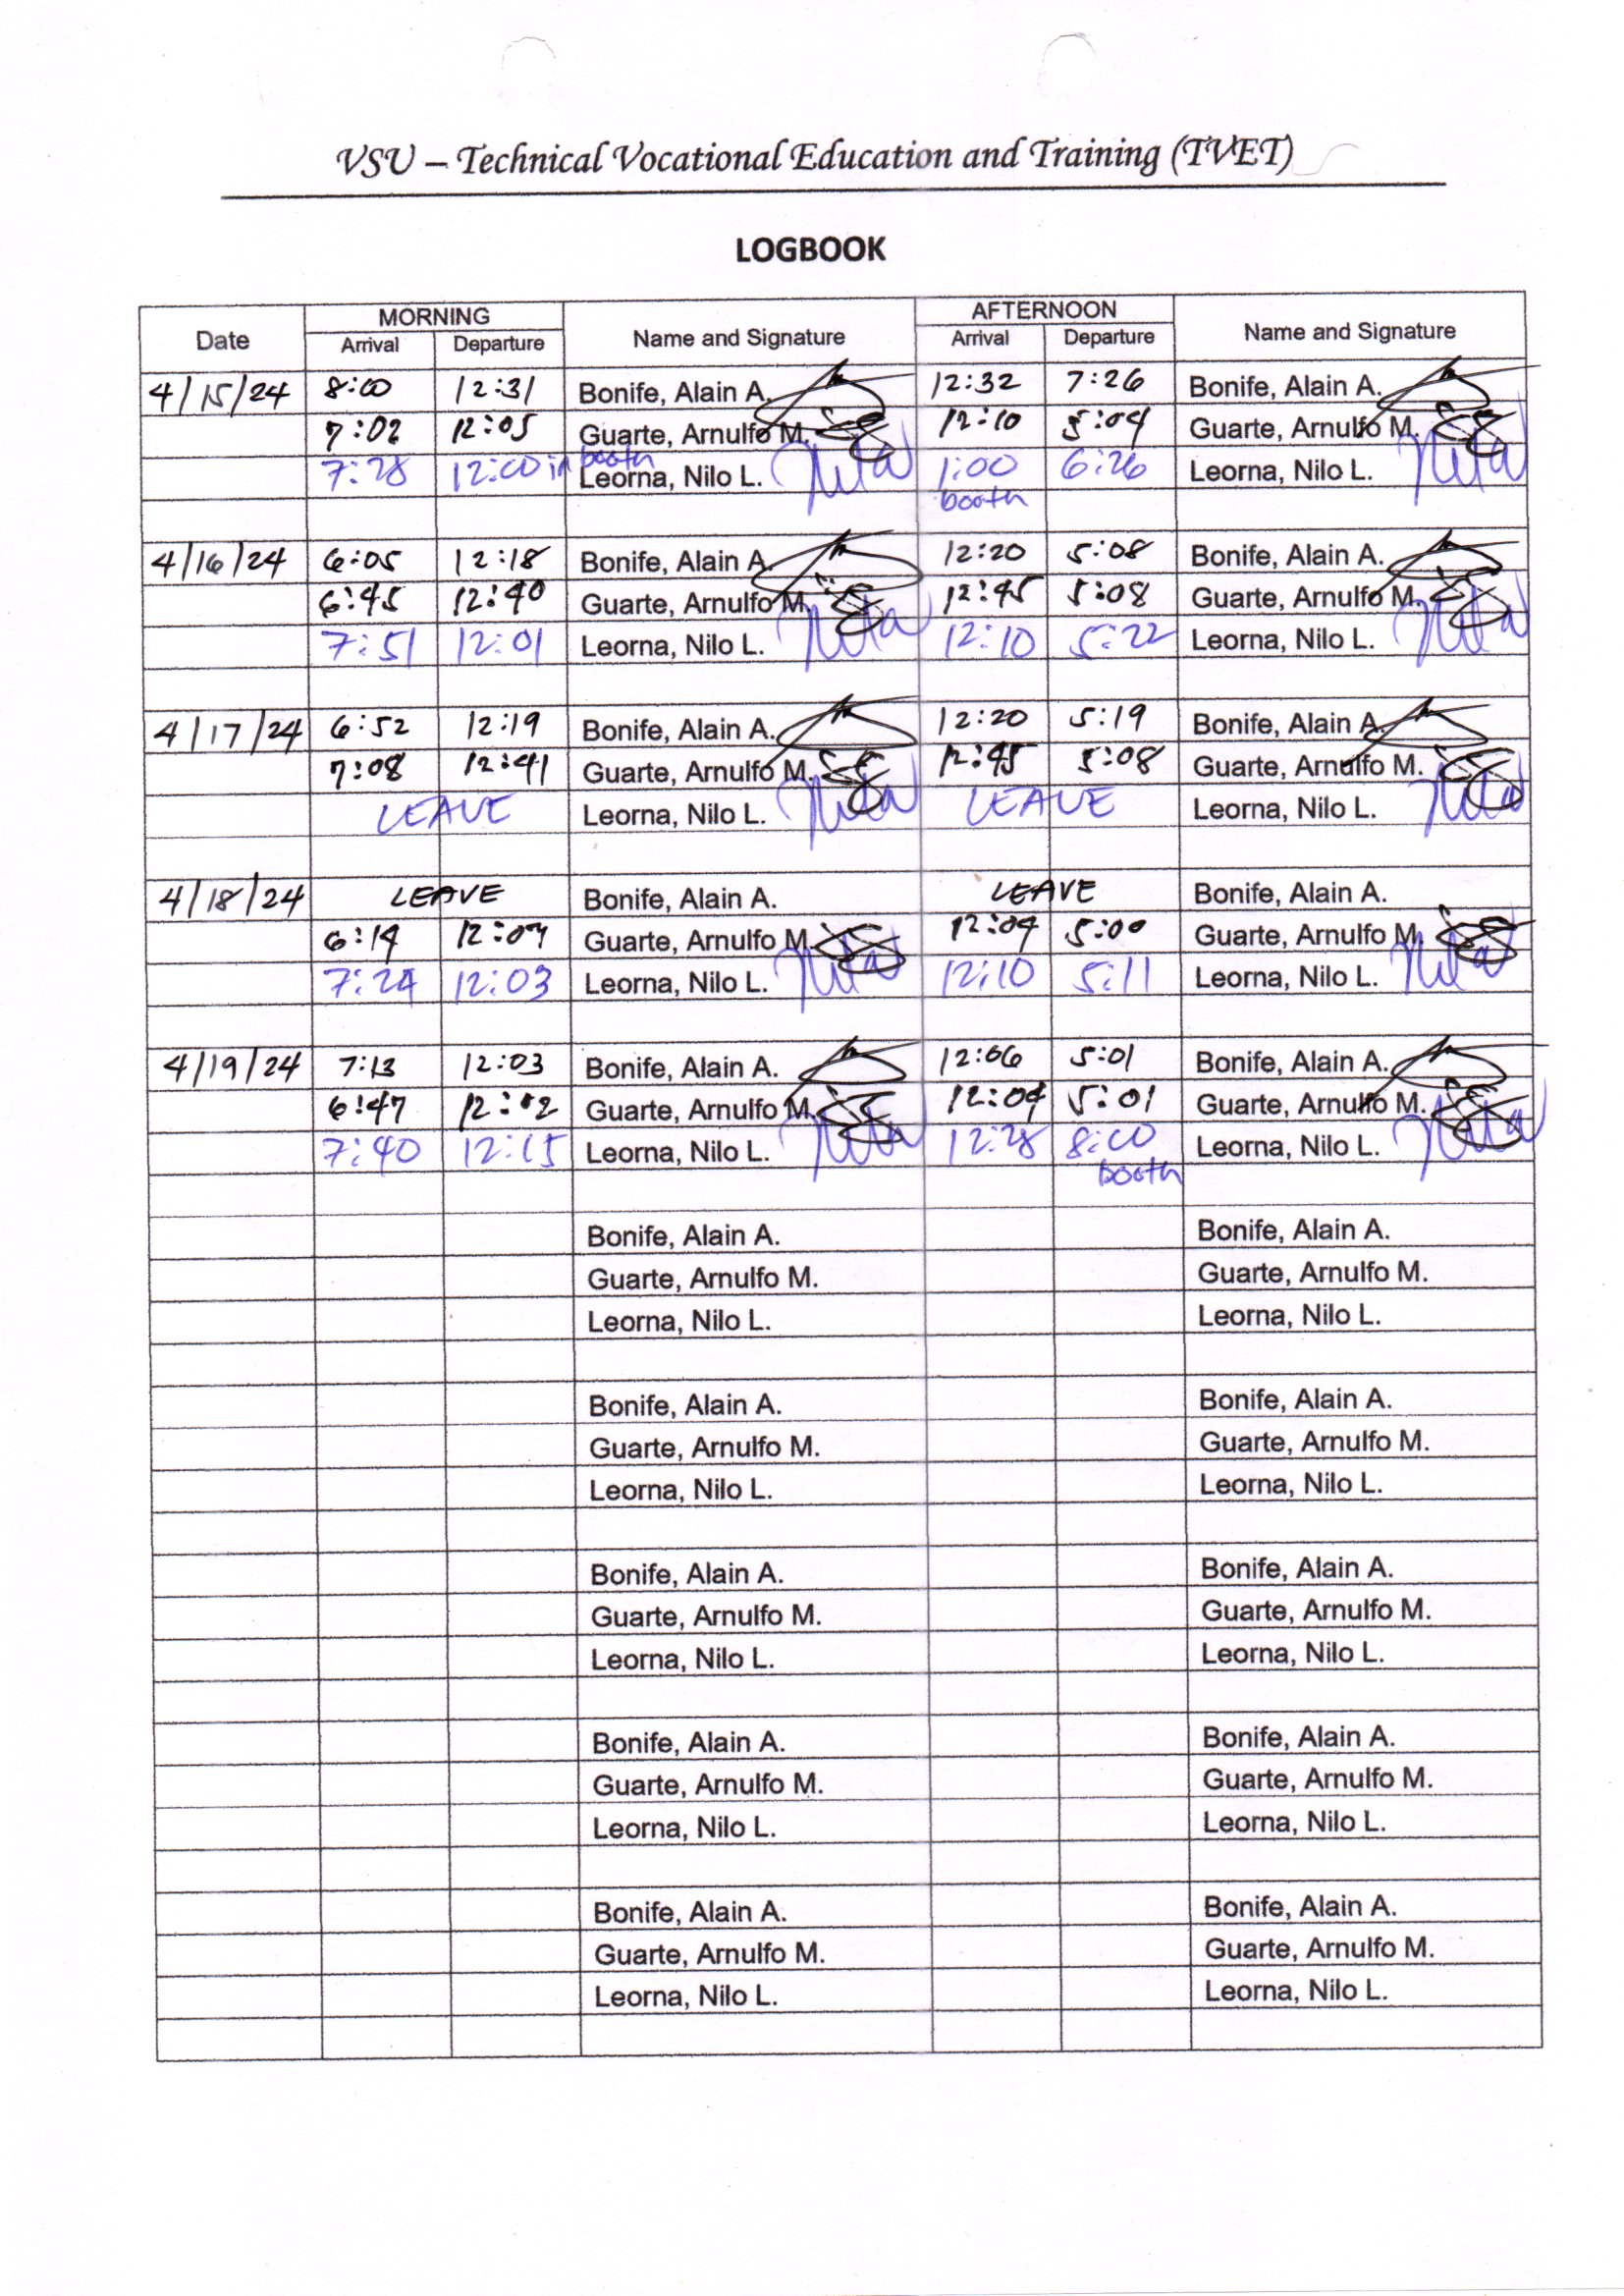 VSU – Technical Vocational Education and Training (TVET)
LOGBOOK
Date MORNING Name and Signature AFTERNOON Name and Signature
Arrival Departure Arrival Departure
4/15/24 8:00 12:31 Bonife, Alain A. 12:32 7:26 Bonife, Alain A.
7:02 12:05 Guarte, Arnulfo M. 12:10 5:04 Guarte, Arnulfo M.
7:28 12:00 in booth Leorna, Nilo L. 1:00 6:26 Leorna, Nilo L.
booth
4/16/24 6:05 12:18 Bonife, Alain A. 12:20 5:08 Bonife, Alain A.
6:45 12:40 Guarte, Arnulfo M. 12:45 5:08 Guarte, Arnulfo M.
7:51 12:01 Leorna, Nilo L. 12:10 5:22 Leorna, Nilo L.
4/17/24 6:52 12:19 Bonife, Alain A. 12:20 5:19 Bonife, Alain A.
7:08 12:41 Guarte, Arnulfo M. 12:45 5:08 Guarte, Arnulfo M.
LEAVE Leorna, Nilo L. LEAVE Leorna, Nilo L.
4/18/24 LEAVE Bonife, Alain A. LEAVE Bonife, Alain A.
6:14 Guarte, Arnulfo M. 12:09 5:00 Guarte, Arnulfo M.
7:24 12:03 Leorna, Nilo L. 12:10 5:11 Leorna, Nilo L.
4/19/24 7:13 12:03 Bonife, Alain A. 12:06 5:01 Bonife, Alain A.
6:47 12:02 Guarte, Arnulfo M. 12:04 5:01 Guarte, Arnulfo M.
7:40 12:15 Leorna, Nilo L. 12:28 8:00 Leorna, Nilo L.
booth
Bonife, Alain A. Bonife, Alain A.
Guarte, Arnulfo M. Guarte, Arnulfo M.
Leorna, Nilo L. Leorna, Nilo L.
Bonife, Alain A. Bonife, Alain A.
Guarte, Arnulfo M. Guarte, Arnulfo M.
Leorna, Nilo L. Leorna, Nilo L.
Bonife, Alain A. Bonife, Alain A.
Guarte, Arnulfo M. Guarte, Arnulfo M.
Leorna, Nilo L. Leorna, Nilo L.
Bonife, Alain A. Bonife, Alain A.
Guarte, Arnulfo M. Guarte, Arnulfo M.
Leorna, Nilo L. Leorna, Nilo L.
Bonife, Alain A. Bonife, Alain A.
Guarte, Arnulfo M. Guarte, Arnulfo M.
Leorna, Nilo L. Leorna, Nilo L.